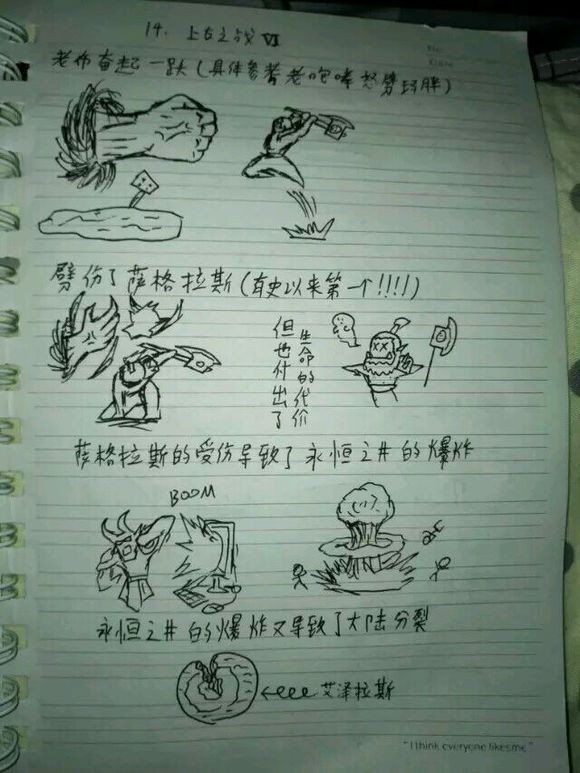 14. 上古之战 VI
老布奋起一跃(具体参考老咆哮怒劈玛胖)
劈伤了萨格拉斯(有史以来第一个!!!!)
但也付出了
生命的代价
萨格拉斯的受伤导致了永恒之井的爆炸
BOOM
永恒之井的爆炸又导致了大陆分裂
艾泽拉斯
"I think everyone likes me"